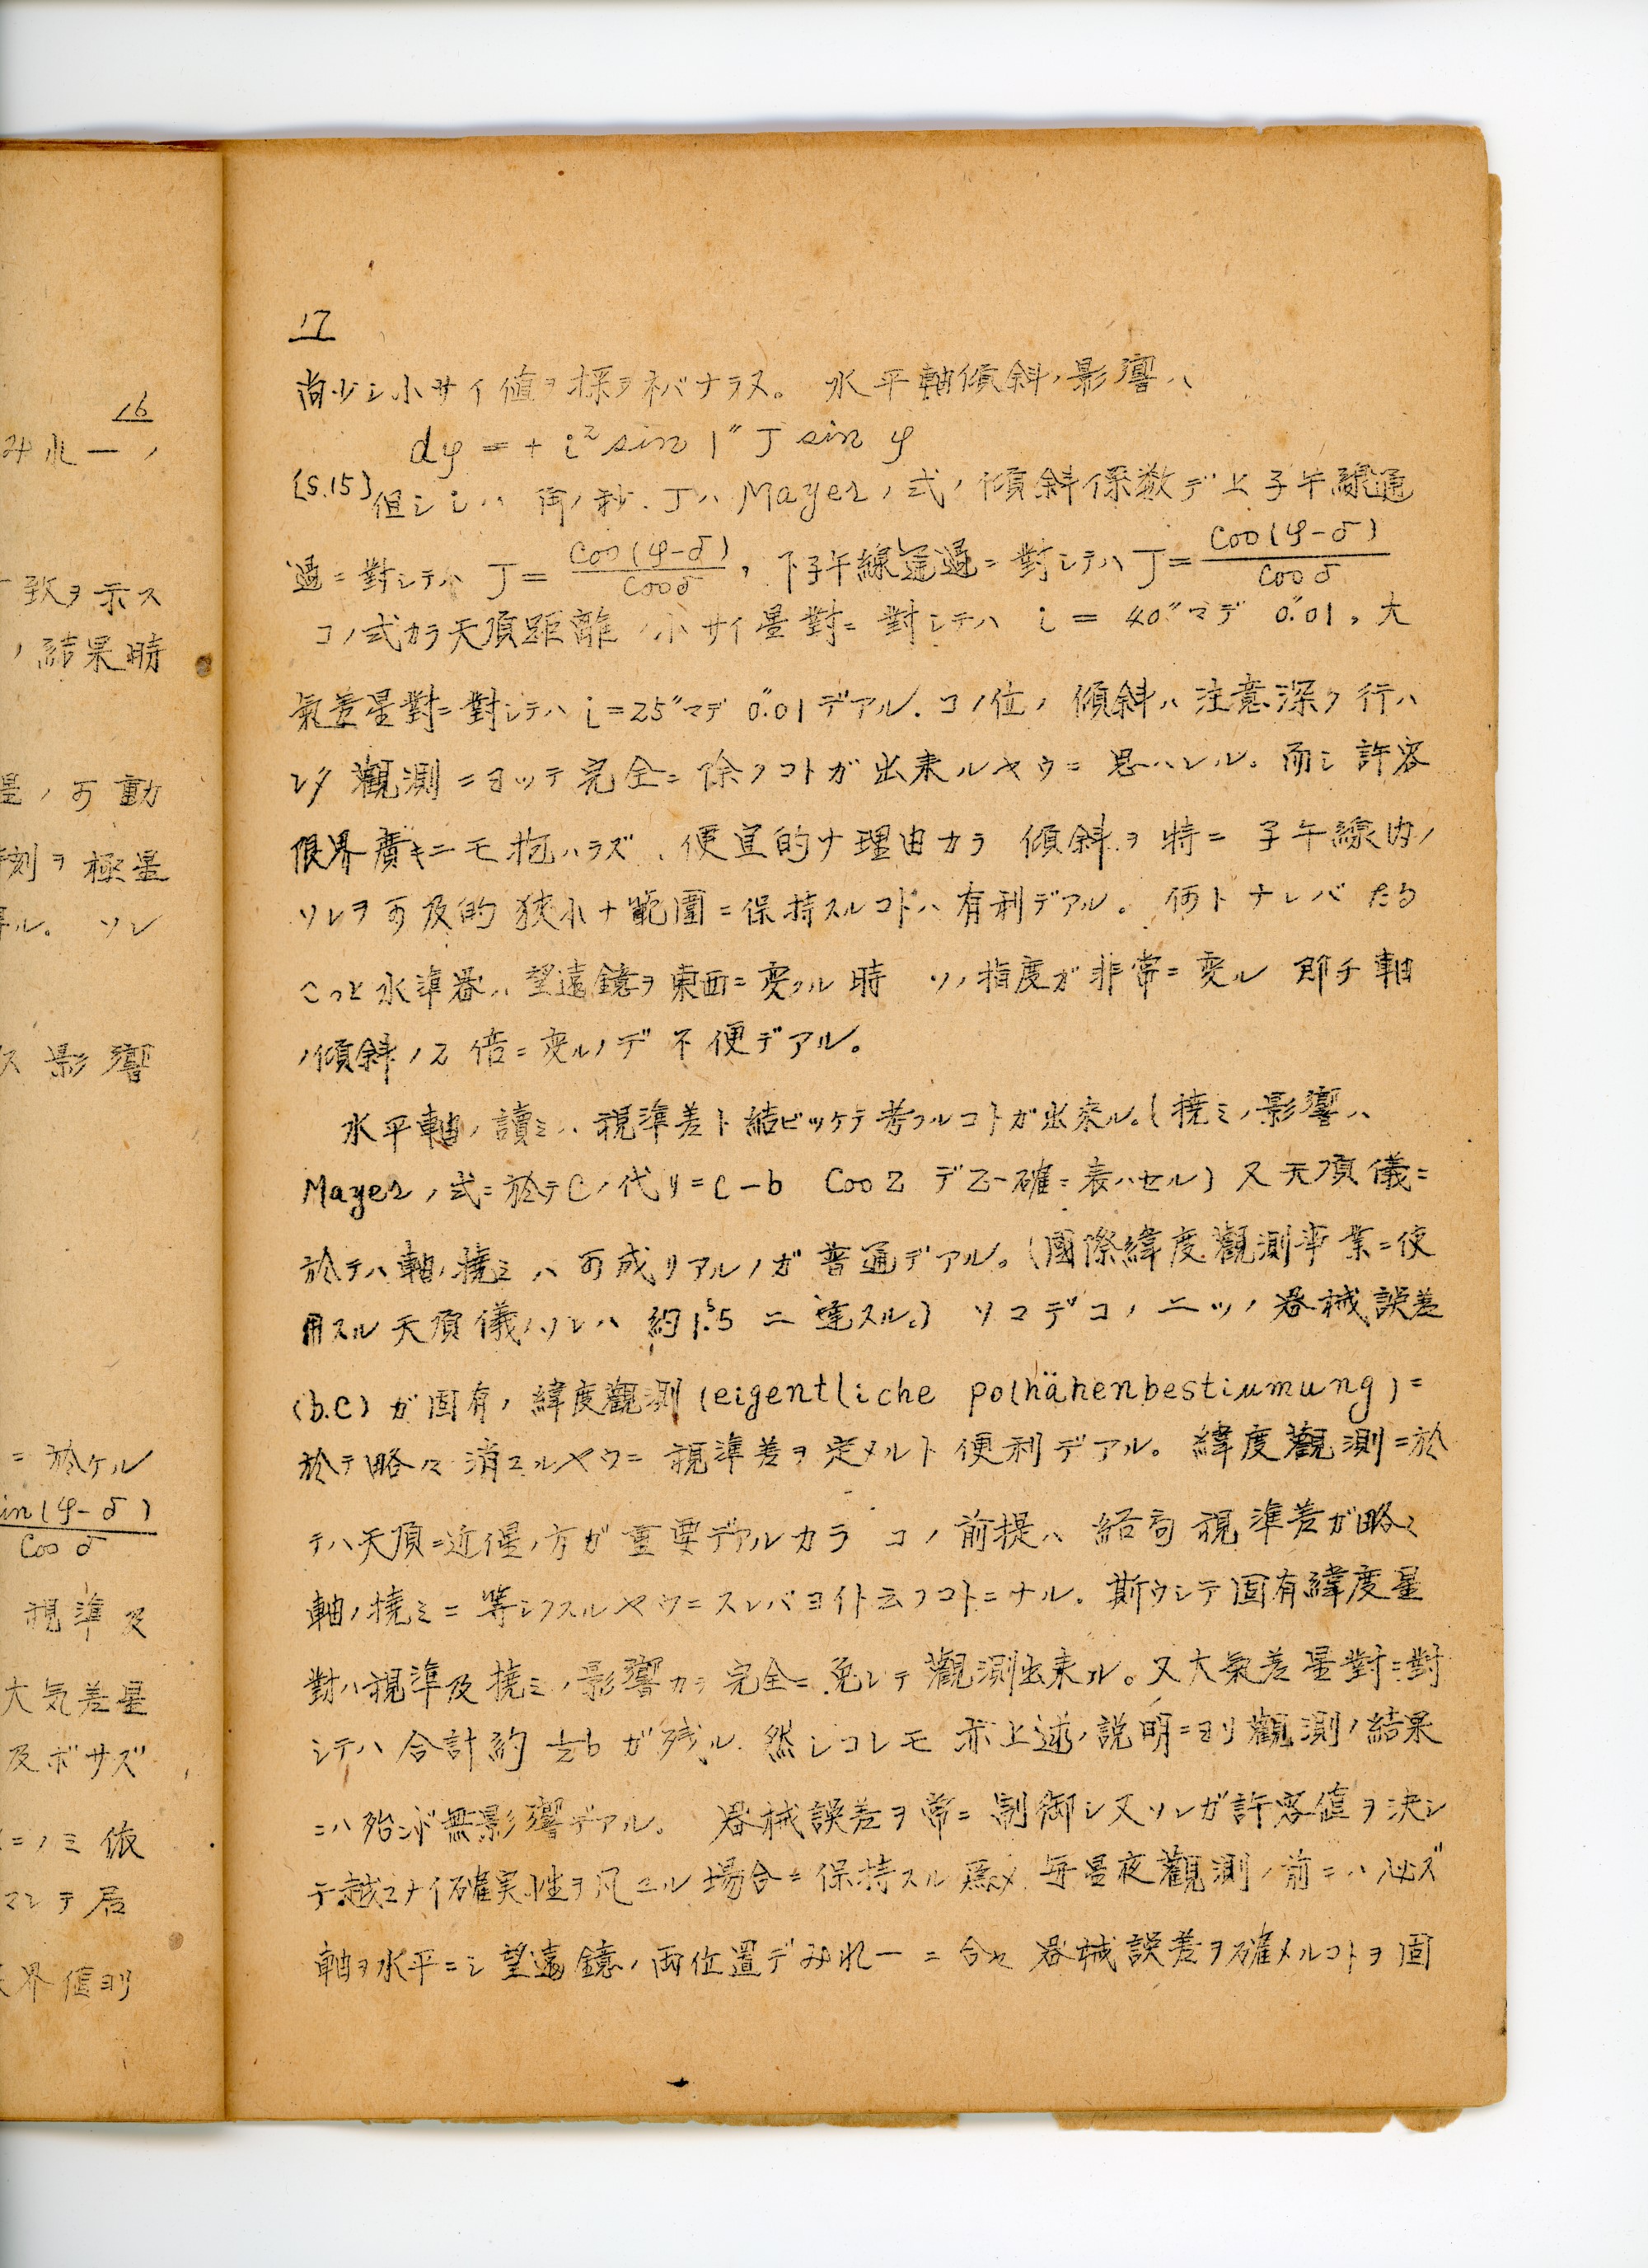 16
みれ一ノ
致ヲ示ス
ノ結果時
星ノ可動
刻ヲ極星
ル。ソレ
ス影響
ニ於ケル
in(φ-δ)
Cos δ
視準及
大気差星
及ボサズ
ニノミ依
マシテ居
界値ヨリ
17
尚少シ小サイ値ヲ採ラネバナラヌ。水平軸傾斜ノ影響ハ
dφ = + i² sin 1″ J sin φ
(S.15) 但シ i ハ 角ノ秒. J ハ Mayer ノ式ノ傾斜係数デ上子午線通
過ニ對シテハ J = Cos(φ-δ) / Cos δ , 下子午線通過ニ對シテハ J = Cos(φ-δ) / Cos δ
コノ式カラ天頂距離ノ小サイ星對ニ對シテハ i = 40″マデ 0.″01, 大
氣差星對ニ對シテハ i = 25″マデ 0.″01 デアル. コノ位ノ傾斜ハ注意深ク行ハ
レタ觀測ニヨッテ完全ニ除クコトガ出来ルヤウニ思ハレル。而シ許容
限界廣キニモ拘ハラズ、便宜的ナ理由カラ傾斜ヲ特ニ子午線内ノ
ソレヲ可及的狭小ナ範圍ニ保持スルコトハ有利デアル。何トナレバ たる
こっと水準器ハ望遠鏡ヲ東西ニ変ヘル時ソノ指度ガ非常ニ変ル 即チ軸
ノ傾斜ノ2倍ニ変ルノデ不便デアル。
水平軸ノ讀ミハ視準差ト結ビツケテ考フルコトガ出來ル。(撓ミノ影響ハ
Mayer ノ式ニ於テ C ノ代リニ C-b Cos Z デ正確ニ表ハセル) 又天頂儀ニ
於テハ軸ノ撓ミハ可成リアルノガ普通デアル。(國際緯度觀測事業ニ使
用スル天頂儀ノソレハ約1.ˢ5ニ達スル。) ソコデコノ二ツノ器械誤差
(b.C) ガ固有ノ緯度觀測 (eigentliche polhähenbestiumung) ニ
於テ略々消エルヤウニ視準差ヲ定メルト便利デアル。緯度觀測ニ於
テハ天頂ニ近イ星ノ方ガ重要デアルカラ コノ前提ハ結局視準差ガ略々
軸ノ撓ミニ等シクスルヤウニスレバヨイト云フコトニナル。斯ウシテ固有緯度星
對ハ視準及撓ミノ影響カラ完全ニ免レテ觀測出来ル。又大氣差星對ニ對
シテハ合計約 ½b ガ残ル. 然シコレモ亦上述ノ説明ニヨリ觀測ノ結果
ニハ殆ンド無影響デアル。 器械誤差ヲ常ニ制御シ又ソレガ許容値ヲ決シ
テ越エナイ確実性ヲ凡ユル場合ニ保持スル爲メ 毎星夜觀測ノ前ニハ必ズ
軸ヲ水平ニシ望遠鏡ノ両位置デみれーニ合セ 器械誤差ヲ確メルコトヲ固